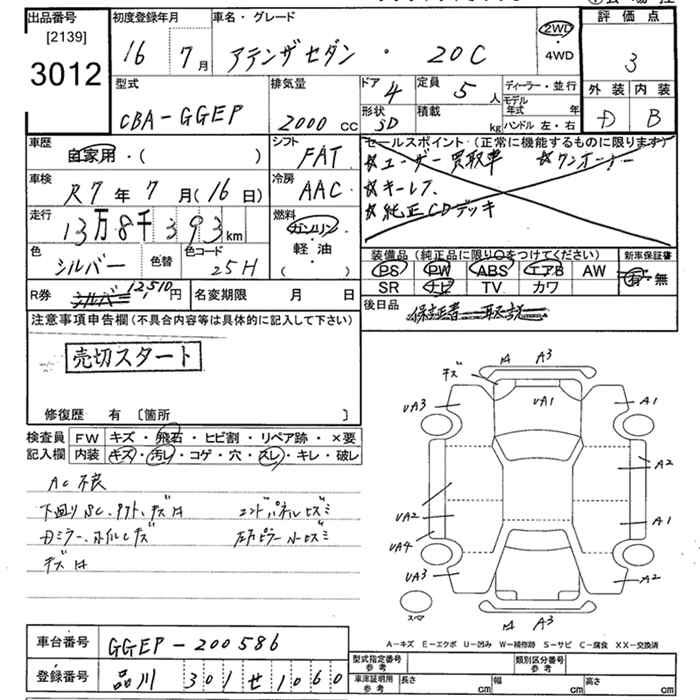 出品番号 初度登録年月 車名・グレード 2WD ・ 4WD 評価点
[2139] 3012 16年 7月 アテンザセダン ・ 20C 3
型式 排気量 ドア 4 定員 5人 ディーラー・並行 外装 内装
CBA-GGEP 2000cc 形状 SD 積載 kg モデル年式 年 ハンドル 左・右 D B
車歴 自家用・( ) シフト FAT セールスポイント(正常に機能するものに限ります)
☆ユーザー買取車 ☆ワンオーナー
車検 R7年7月(16日) 冷房 AAC ☆キーレス
☆純正CDデッキ
走行 13万8千393km 燃料 ガソリン・軽油 ( )
色 シルバー 色替 色コード 25H
装備品(純正品に限り○をつけてください) 新車保証書
PS PW ABS エアB AW 有・無
SR ナビ TV カワ
R券 シルバー 12,510円 名変期限 月 日
後日品 保証書 取説
注意事項申告欄(不具合内容等は具体的に記入して下さい)
売切スタート
修復歴 有 [箇所 ]
検査員記入欄 FW キズ・飛石・ヒビ割・リペア跡・×要
内装 キズ・汚レ・コゲ・穴・スレ・キレ・破レ
AC不良
下回りSC、
キズ
A A3
UA3 UA1 A1
A2
UA2 A1
UA4
UA3 A2
A A3
スペア
A-キズ E-エクボ U-凹み W-補修跡 S-サビ C-腐食 XX-交換済
車台番号 GGEP-200586
登録番号 品川 301 せ 1060
型式指定番号 参考 類別区分番号 参考
車庫証明用 参考 長さ cm 幅 cm 高さ cm